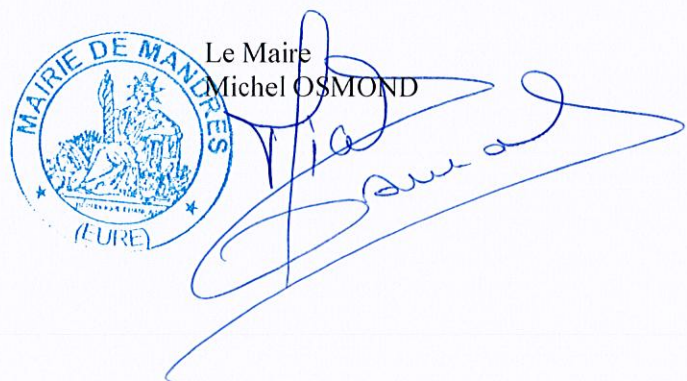 MAIRIE DE MANDRES
(EURE)
Le Maire
Michel OSMOND